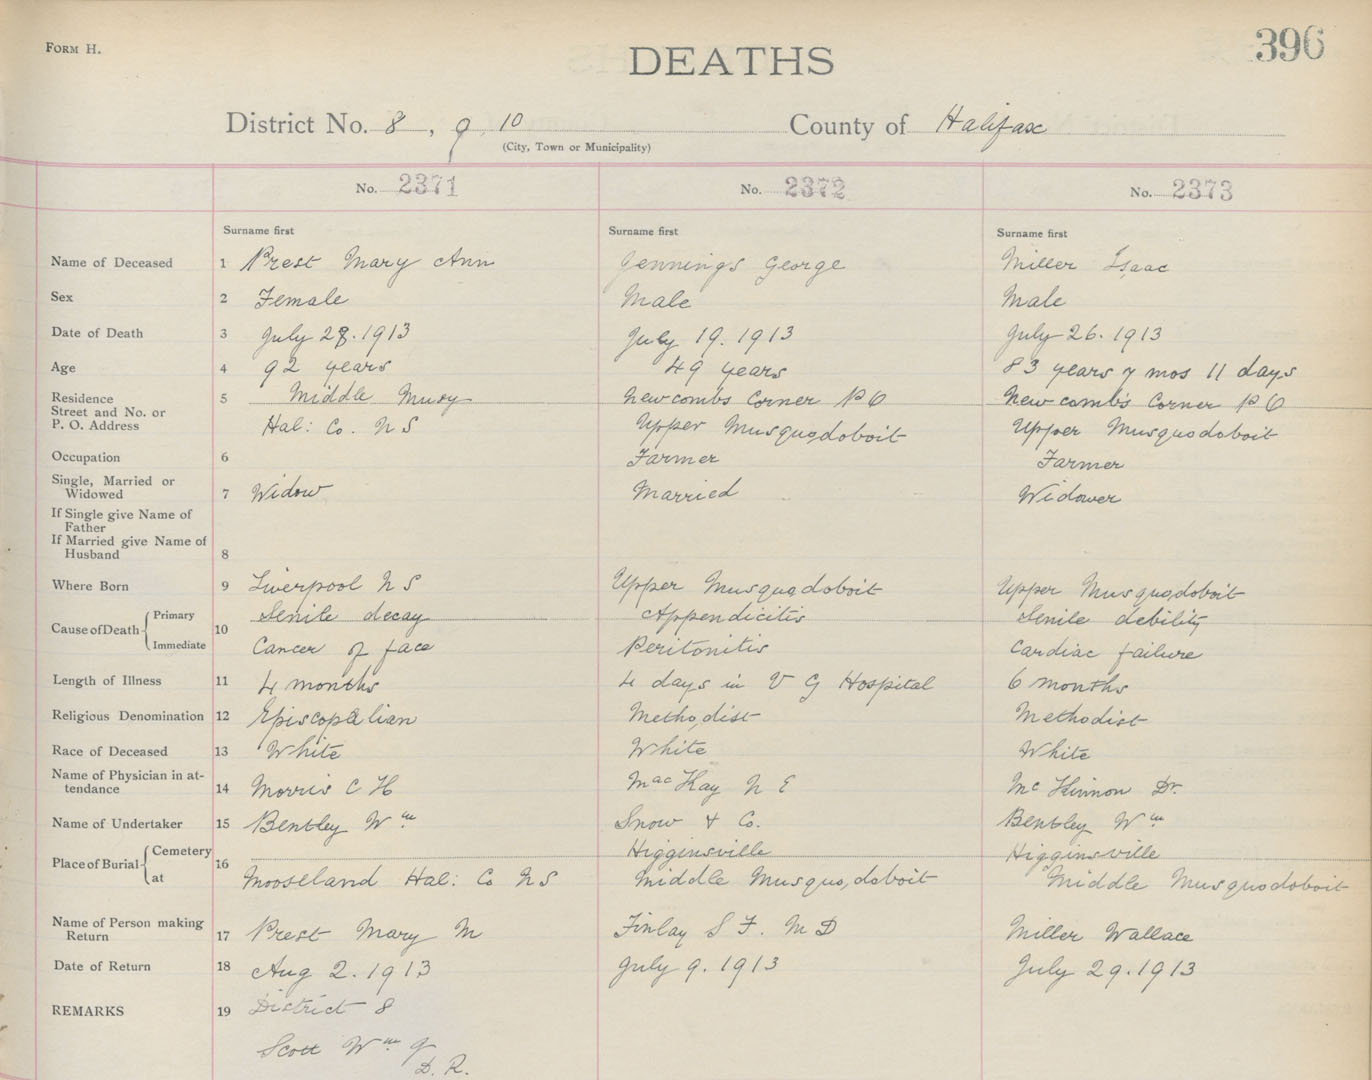 FORM H.
DEATHS
396
District No. 8, 9, 10
County of Halifax
(City, Town or Municipality)
No. 2371
No. 2372
No. 2373
Surname first
Surname first
Surname first
Name of Deceased 1 Prest Mary Ann Jennings George Miller Isaac
Sex 2 Female Male Male
Date of Death 3 July 28. 1913 July 19. 1913 July 26. 1913
Age 4 92 years 49 years 83 years 7 mos 11 days
Residence 5 Middle Musqy Newcombs Corner P O Newcomb's Corner P O
Street and No. or
P. O. Address Hal: Co. N S Upper Musquodoboit Upper Musquodoboit
Occupation 6 Farmer Farmer
Single, Married or
Widowed 7 Widow Married Widower
If Single give Name of
Father
If Married give Name of
Husband 8
Where Born 9 Liverpool N S Upper Musquodoboit Upper Musquodoboit
Cause of Death 10 Primary Senile decay Appendicitis Senile debility
Immediate Cancer of face Peritonitis Cardiac failure
Length of Illness 11 4 months 4 days in V G Hospital 6 months
Religious Denomination 12 Episcopalian Methodist Methodist
Race of Deceased 13 White White White
Name of Physician in at-
tendance 14 Morris C H MacKay N E McKinnon Dr.
Name of Undertaker 15 Bentley Wm Snow & Co. Bentley Wm
Place of Burial 16 Cemetery Higginsville Higginsville
at Mooseland Hal: Co N S Middle Musquodoboit Middle Musquodoboit
Name of Person making
Return 17 Prest Mary M Finlay S F. M D Miller Wallace
Date of Return 18 Aug 2. 1913 July 9. 1913 July 29. 1913
REMARKS 19 District 8
Scott Wm J
D. R.